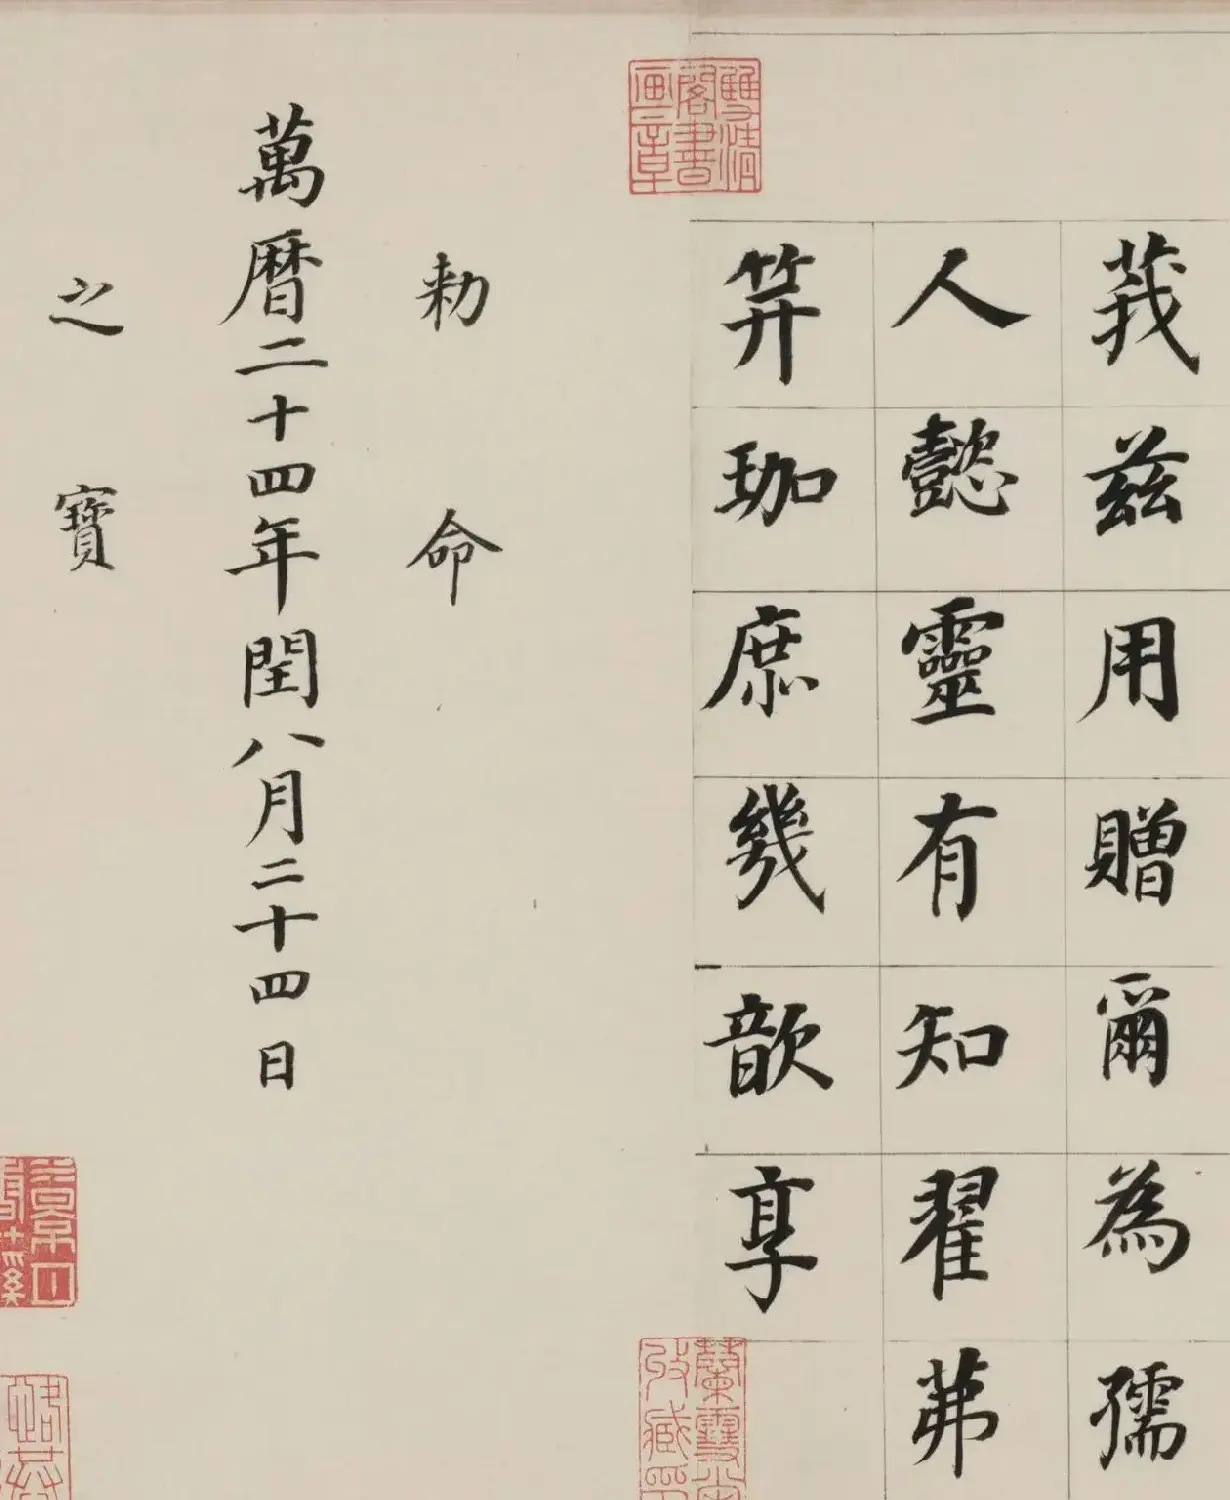 莪茲用贈爾為孺
人懿靈有知翟茀
笄珈庶幾歆享
勅命
萬曆二十四年閏八月二十四日
之寶
雙清
閣書
画章